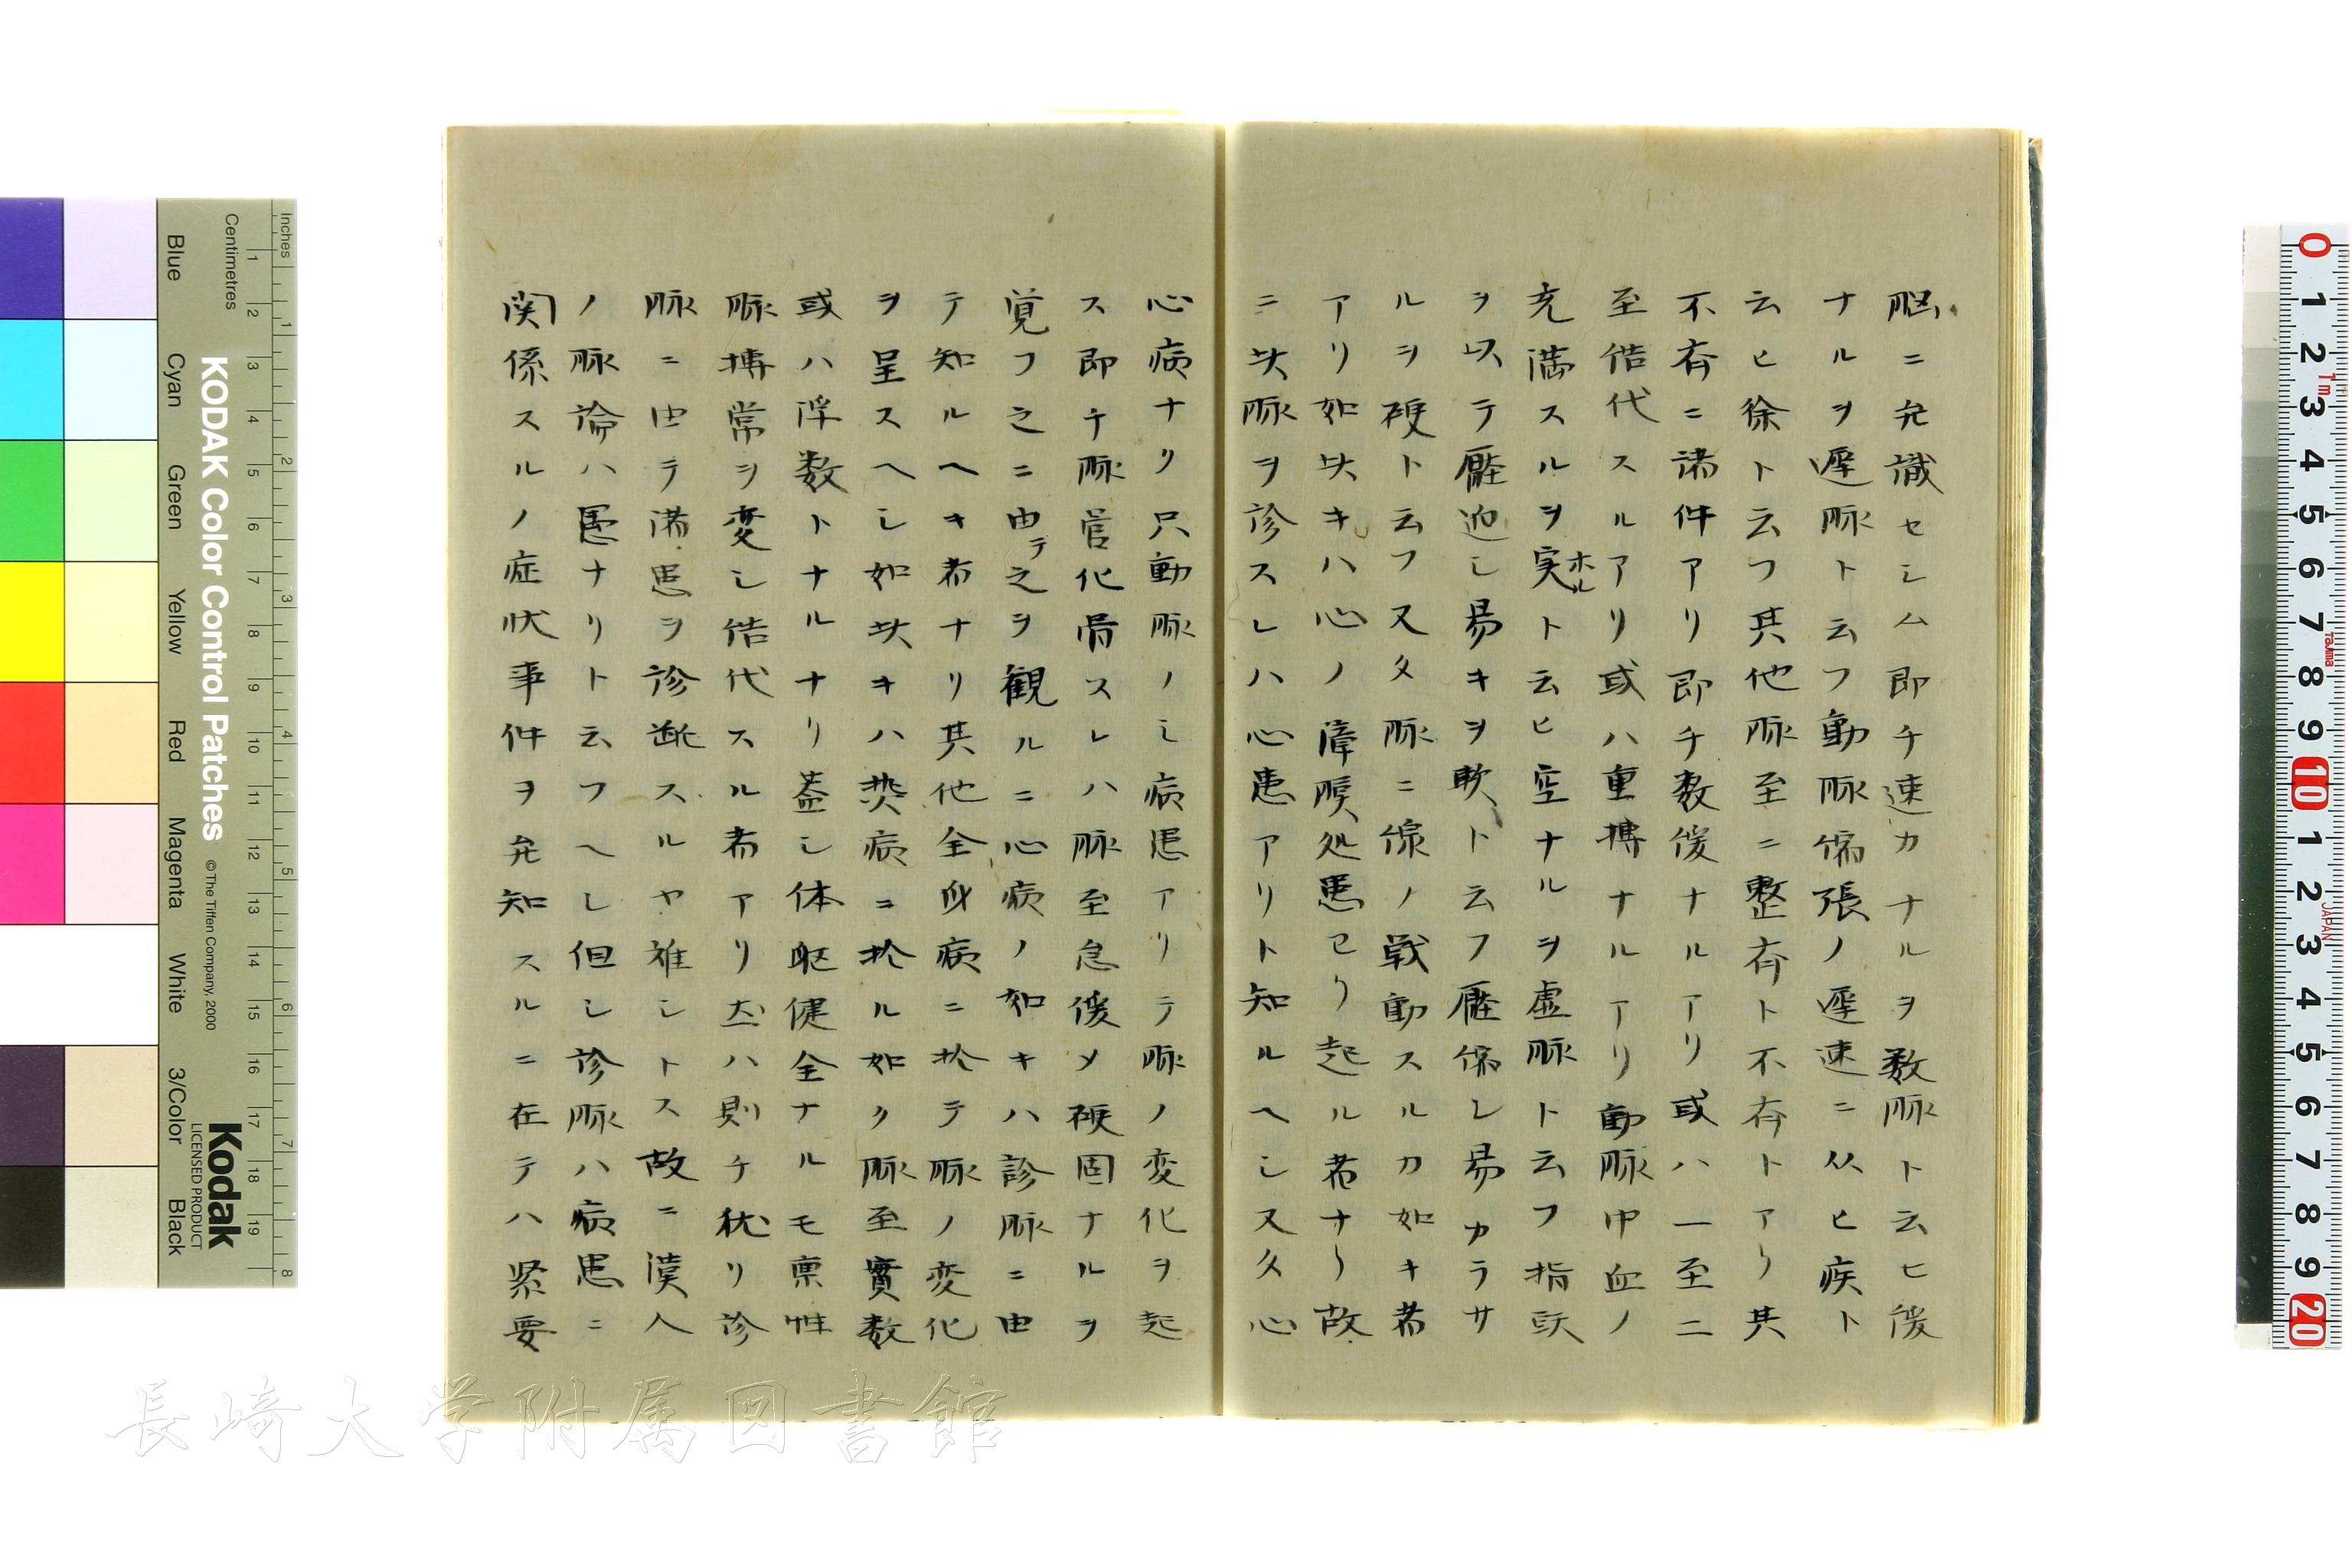 脳ニ允識セシム即チ速カナルヲ数脉ト云ヒ緩
ナルヲ遅脉ト云フ動脉偏張ノ遅速ニ从ヒ疾ト
云ヒ徐ト云フ其他脉至ニ整斉ト不斉トアリ其
不斉ニ諸件アリ即チ数緩ナルアリ或ハ一至二
至結代スルアリ或ハ重搏ナルアリ動脉中血ノ
充満スルヲ実ホルト云ヒ空ナルヲ虚脉ト云フ指頭
ヲ以テ壓迫シ易キヲ軟ト云フ壓偏シ易カラサ
ルヲ硬ト云フ又タ脉ニ線ノ戦動スルカ如キ者
アリ如此キハ心ノ障膜処患ヨリ起ル者ナリ故
ニ此脉ヲ診スレハ心患アリト知ルヘシ又タ心
心病ナリ只動脉ノミ病患アリテ脉ノ変化ヲ起
ス即チ脉管化骨スレハ脉至急緩メ硬固ナルヲ
覚フ之ニ由テ之ヲ観ルニ心病ノ如キハ診脉ニ由
テ知ルヘキ者ナリ其他全身病ニ於テ脉ノ変化
ヲ呈スヘシ如此キハ熱病ニ於ル如ク脉至實数
或ハ浮数トナルナリ蓋シ体躯健全ナルモ禀性
脉搏常ヲ変シ結代スル者アリ然ハ則チ独リ診
脉ニ由テ諸患ヲ診断スルヤ難シトス故ニ漢人
ノ脉論ハ愚ナリト云フヘシ但シ診脉ハ病患ニ
関係スルノ症状事件ヲ允知スルニ在テハ緊要
長崎大学附属図書館
Inches
Centimetres
KODAK Color Control Patches
© The Tiffen Company, 2000
Kodak
LICENSED PRODUCT
Blue
Cyan
Green
Yellow
Red
Magenta
White
3/Color
Black
1 2 3 4 5 6 7 8 9 10 11 12 13 14 15 16 17 18 19
1 2 3 4 5 6 7 8
0 1 2 3 4 5 6 7 8 9 10 1 2 3 4 5 6 7 8 9 20
1m
Tajima
JAPAN